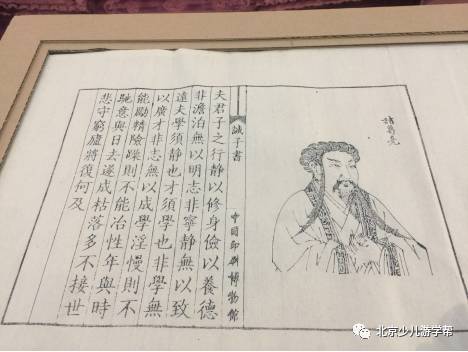 諸葛亮
誡子書
中国印刷博物館
夫君子之行靜以修身儉以養德
非澹泊無以明志非寧靜無以致
遠夫學須靜也才須學也非學無
以廣才非志無以成學淫慢則不
能勵精險躁則不能冶性年與時
馳意與日去遂成枯落多不接世
悲守窮廬將復何及
北京少儿游学帮